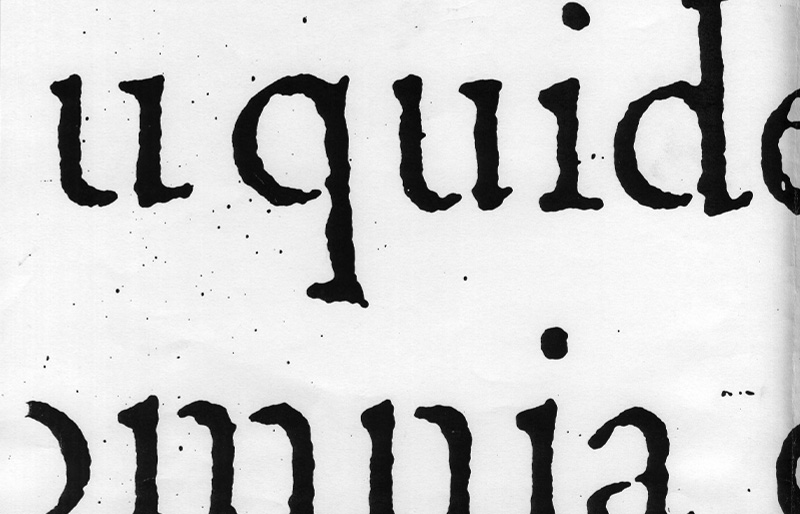 u quide
omnia e